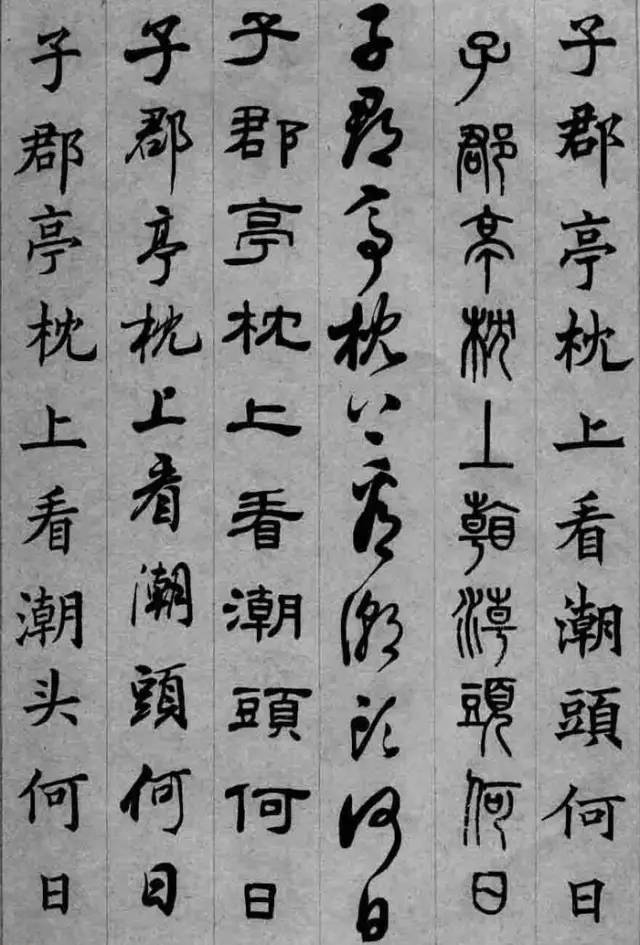 子郡亭枕上看潮頭何日
子郡亭枕上看潮頭何日
子郡亭枕上看潮頭何日
子郡亭枕上看潮頭何日
子郡亭枕上看潮頭何日
子郡亭枕上看潮头何日